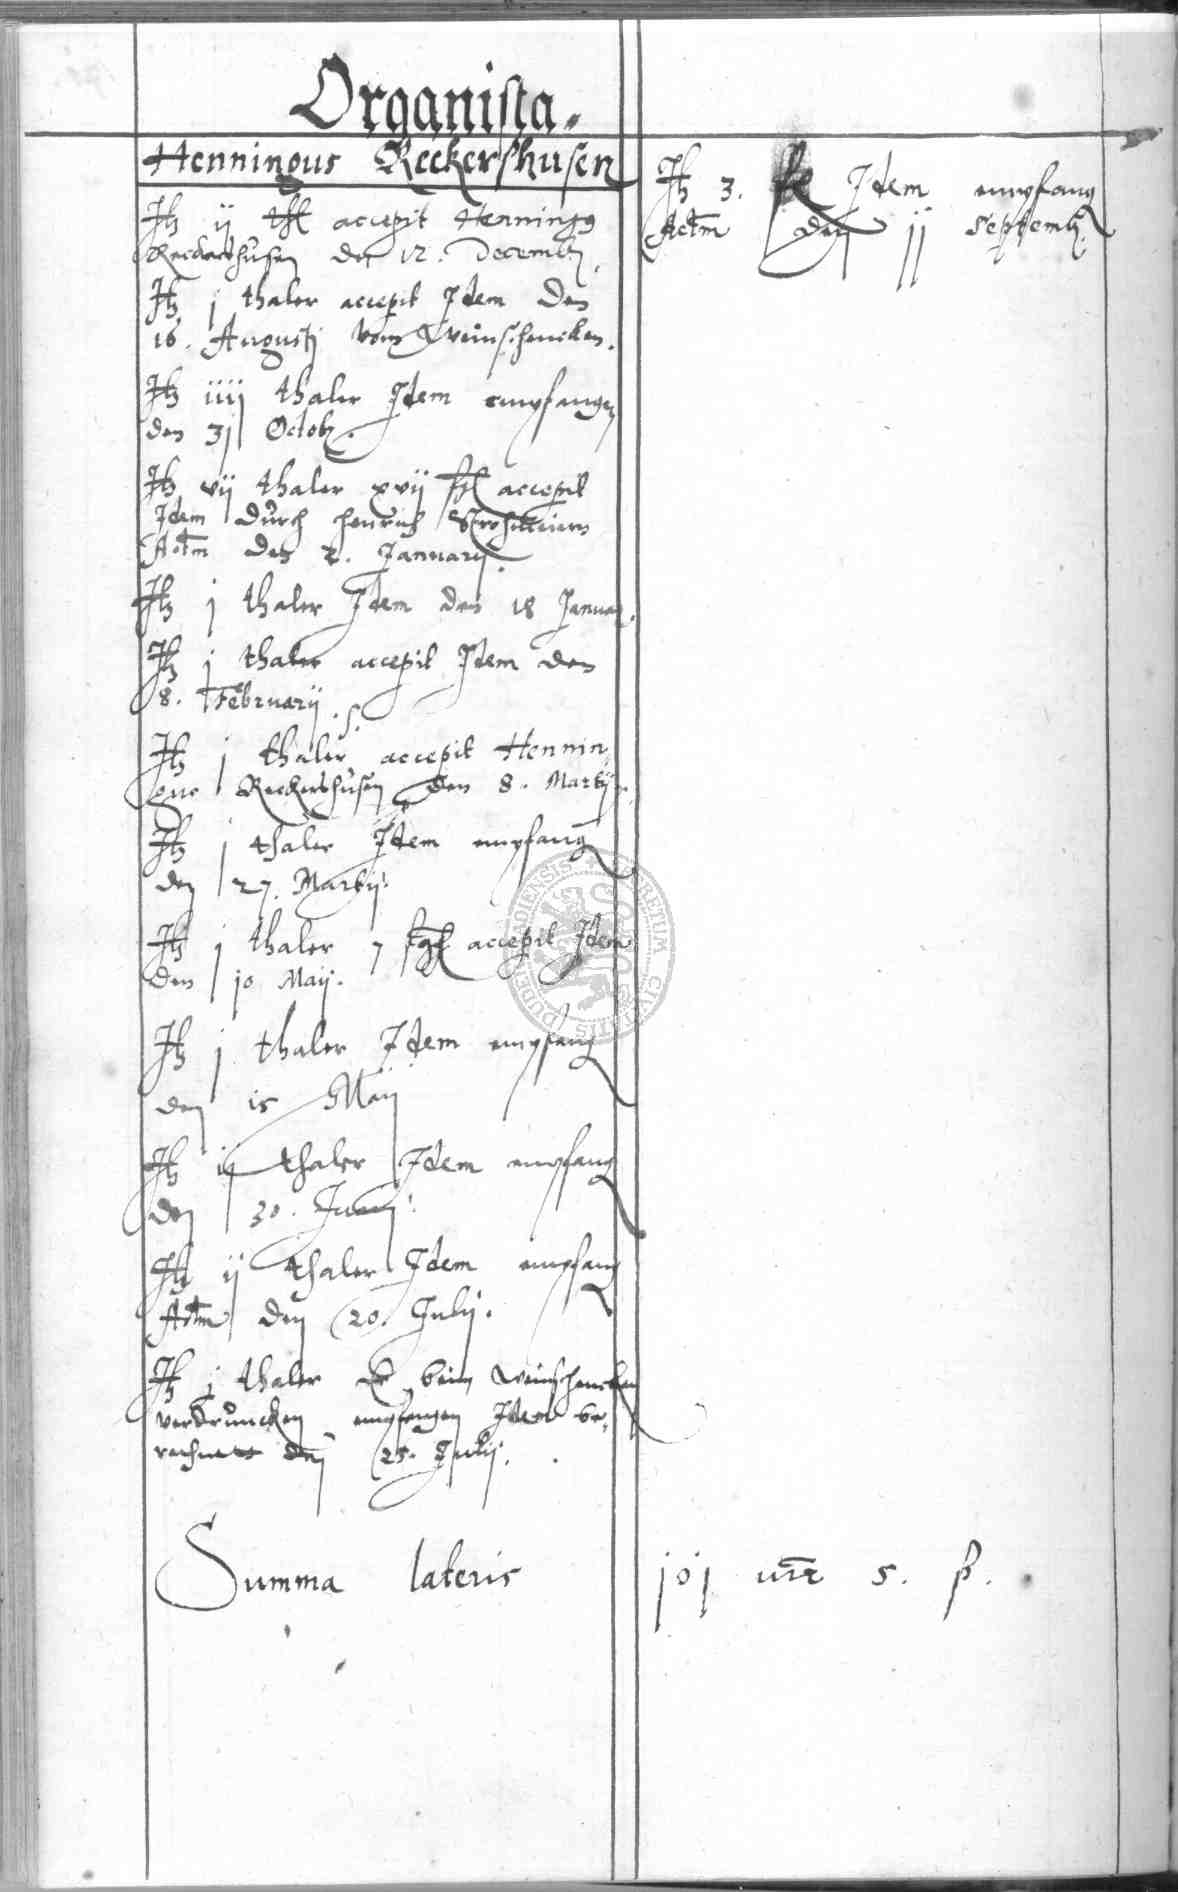 Organista.
Henningus Reckershusen
Itz ij thl accepit Henning9
Reckershusen den 12. Decemb.
Itz j thaler accepit Idem den
16. Augustj vom Weinschencken.
Itz iiij thaler Idem empfangen
den 31 Octob.
Itz vij thaler xvij accepit
Idem durch Henrich
Actm den 2. Januarij.
Itz j thaler Idem den 18 Januar.
Itz j thaler accepit Idem den
8. Februarij.
Itz j thaler accepit Hennin
gus Reckershusen den 8. Martij.
Itz j thaler Idem empfang
den 27. Martij.
Itz j thaler 7 accepit Idem
den 10 Maij.
Itz j thaler Idem empfang
den 15 Maij
Itz ij thaler Idem empfang
den 30. Junij.
Itz ij thaler Idem empfang
Actm den 20. Julij.
Itz j thaler beim Weinschencken
verdruncken empfangen Idem be,
rechnett den 25. Julij.
Itz 3. Idem empfang
Actm den 11 Septemb.
Summa lateris j0j mr 5. ß.